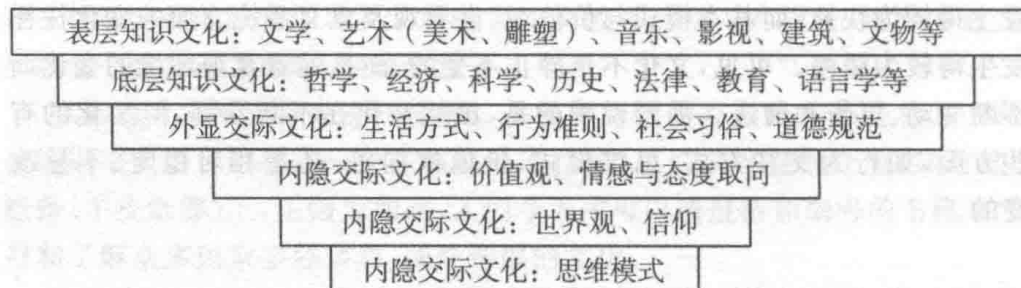 表层知识文化：文学、艺术（美术、雕塑）、音乐、影视、建筑、文物等
底层知识文化：哲学、经济、科学、历史、法律、教育、语言学等
外显交际文化：生活方式、行为准则、社会习俗、道德规范
内隐交际文化：价值观、情感与态度取向
内隐交际文化：世界观、信仰
内隐交际文化：思维模式